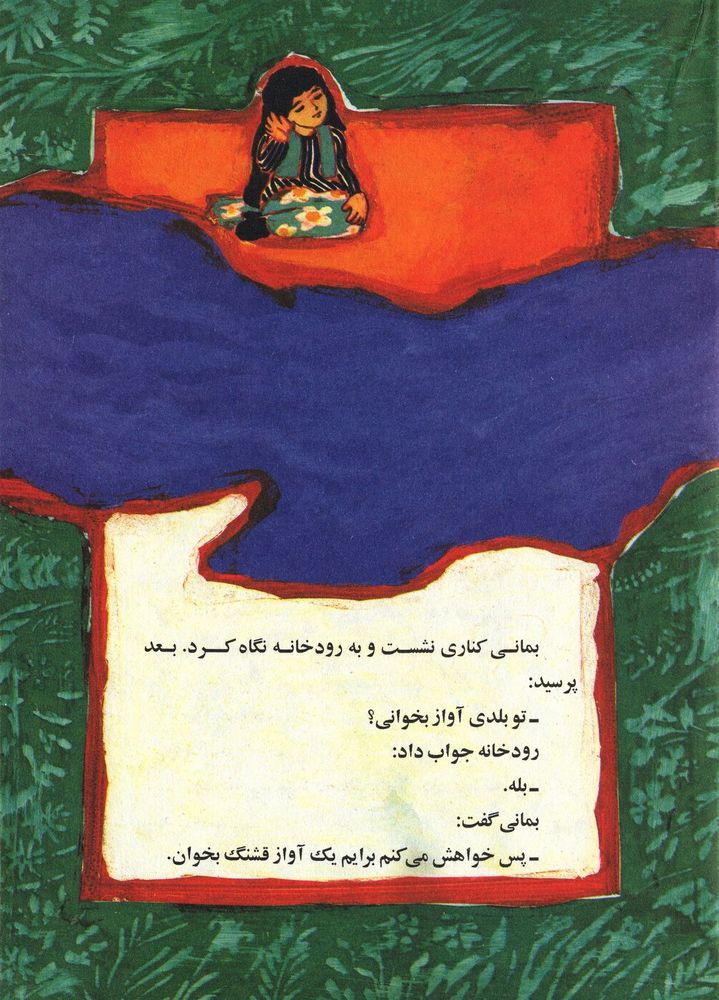 بمانی کناری نشست و به رودخانه نگاه کرد. بعد
پرسید:
ـ تو بلدی آواز بخوانی؟
رودخانه جواب داد:
ـ بله.
بمانی گفت:
ـ پس خواهش می‌کنم برایم یک آواز قشنگ بخوان.